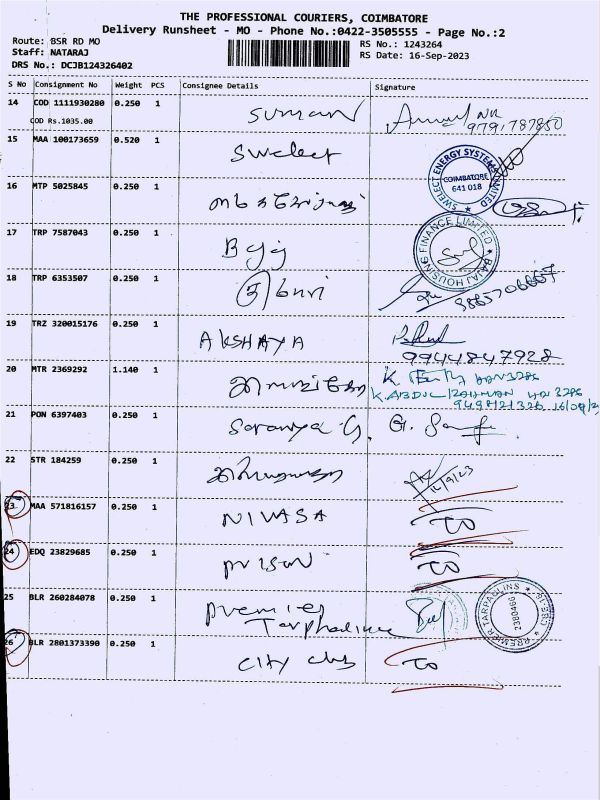 THE PROFESSIONAL COURIERS, COIMBATORE
Delivery Runsheet - MO - Phone No.:0422-3505555 - Page No.:2
Route: BSR RD MO
RS No.: 1243264
Staff: NATARAJ
RS Date: 16-Sep-2023
DRS No.: DCJB124326402
S No Consignment No Weight PCS Consignee Details Signature
14 COD 1111930280 0.250 1 Suman NR
COD Rs.1035.00 9791787850
15 MAA 100173659 0.520 1 Swelect
SWELECT ENERGY SYSTEMS LIMITED
COIMBATORE
641 018
16 MTP 5025845 0.250 1
17 TRP 7587043 0.250 1 Bajaj
BAJAJ HOUSING FINANCE LIMITED
18 TRP 6353507 0.250 1
9865706667
19 TRZ 320015176 0.250 1 AKSHAYA
9944847928
20 MTR 2369292 1.140 1
K.ABDUL RAHMAN
21 PON 6397403 0.250 1 Saranya G.
22 STR 184259 0.250 1
16/9/23
23 MAA 571816157 0.250 1 NIVASA TO
24 EDQ 23829685 0.250 1 Prison TO
25 BLR 260284078 0.250 1 Premier
PREMIER TARPAULINS
2380466
26 BLR 2801373390 0.250 1 City club TO